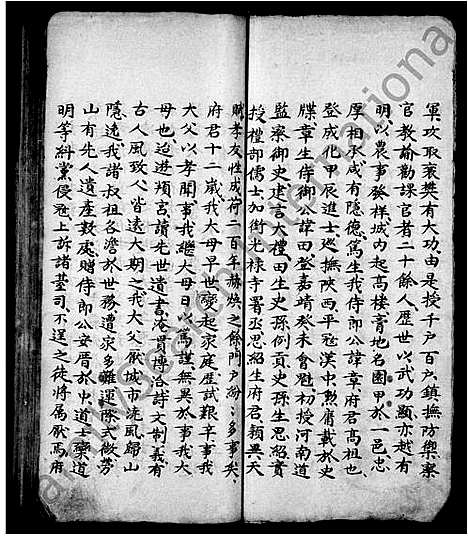 軍攻取裝奬有大功由是授千戶百戶鎮撫防禦案
官教諭勸課官者二十餘人歷世以武功顯亦越有
明以農事發祥城內起高樓膏地名園甲於一邑忠
厚相承咸有隱德篤生我侍郎公諱章府君高祖也
登成化甲辰進士巡撫陝西平寇漢中勲庸載於史
牒章生侍御公諱田登嘉靖癸未會魁初授河南道
監察御史建言大禮田生史孫例貢史孫生思紹貢
授禮部儒士加銜光祿寺署丞思紹生府君穎異天
賦孝友性成荷二百年赫奕之餘門戶海以多事矣
府君十二歲我大母早世變起家庭歷試艱辛事我
大父以孝聞事我繼大母日篤謹無異於事我大
母也迨遊頖宮讀先世遺書淹貫博洽詩文制義有
古人風致人皆遠大期之我大父厭城市澆風歸山
隱遠我諸叔祖各澹於世務遭家多難運際式微勞
山有先人遺產數處贈侍郎公安厝於中道士樂道
明等糾黨侵冺上訴諸臺司不逞之徒將厲厭焉府
amilySearch International